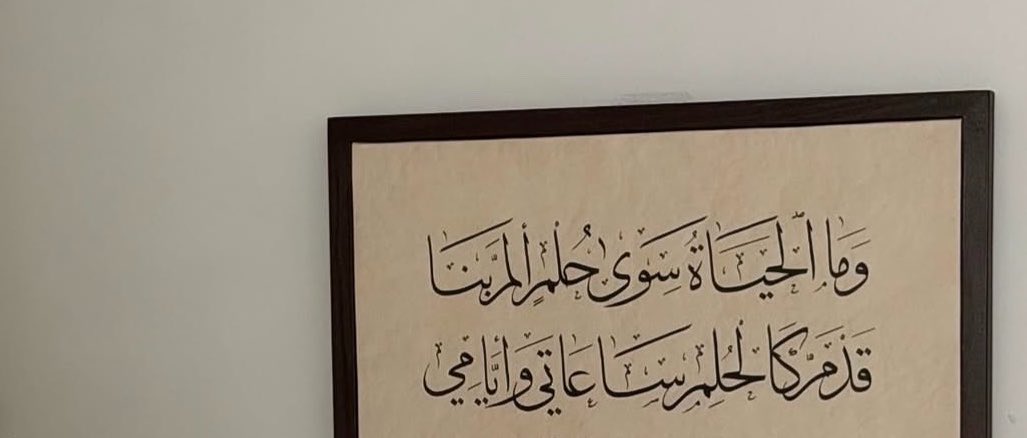 وَمَا الْحَيَاةُ سِوَى حُلْمٍ أَلَمَّ بِنَا
قَدْ مَرَّ كَالْحُلْمِ سَاعَاتِي وَأَيَّامِي